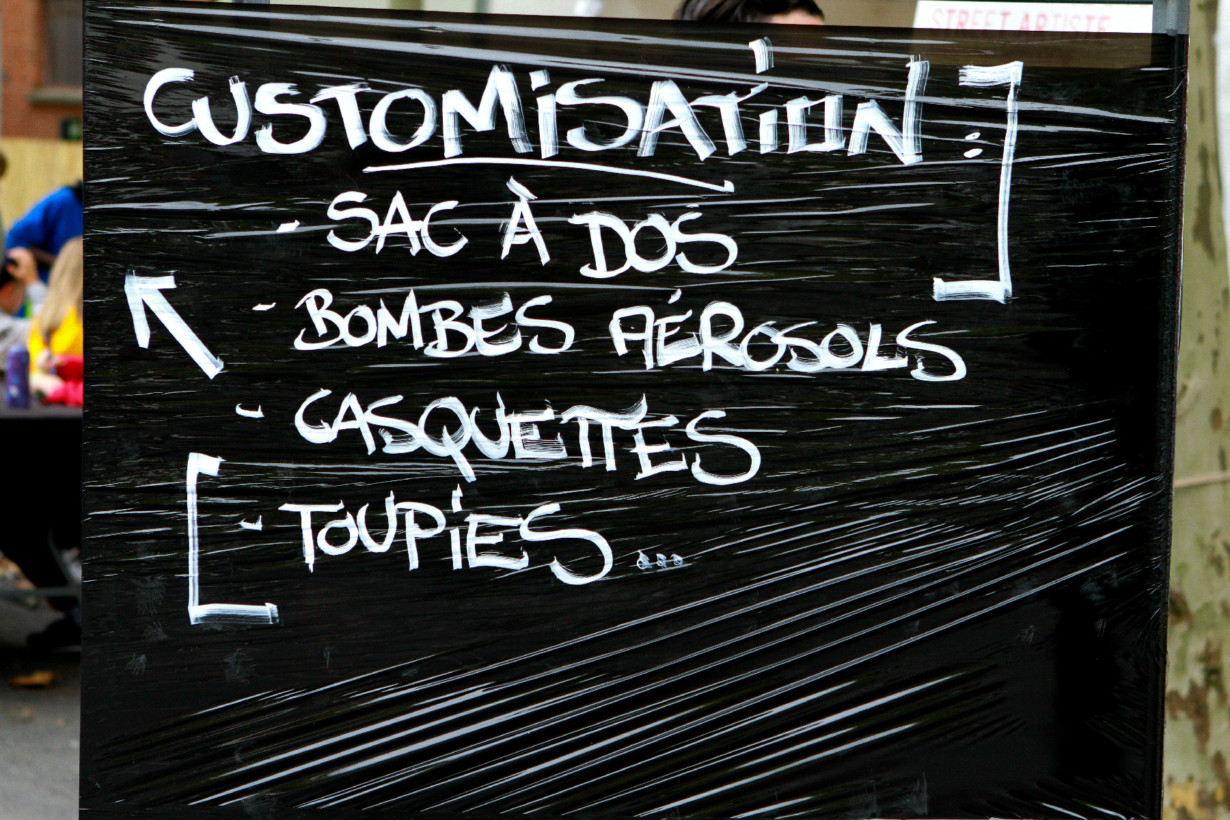 STREET ARTISTE
CUSTOMISATION :
- SAC À DOS
- BOMBES AÉROSOLS
- CASQUETTES
- TOUPIES...